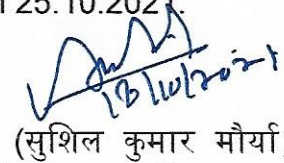 25.10.2021.
13/10/2021
(सुशिल कुमार मौर्या